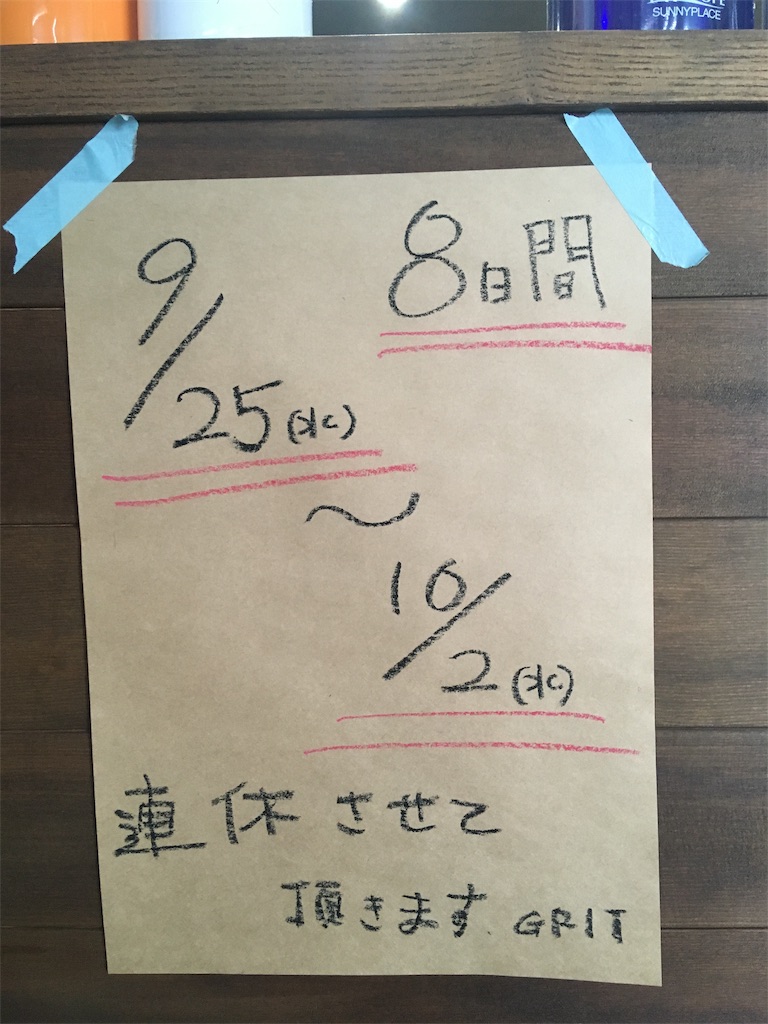 SUNNYPLACE
8日間
9/25(水)
〜
10/2(水)
連休させて
頂きます. GRIT